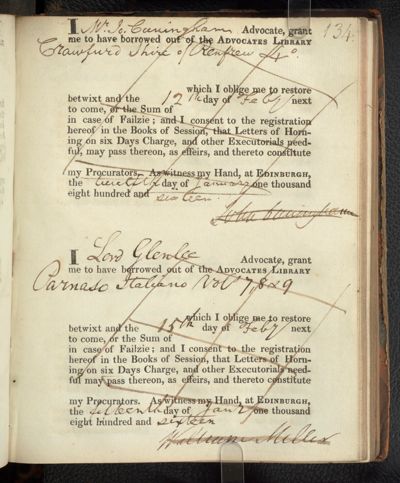 134.
I Mr Jo. Cuningham Advocate, grant
me to have borrowed out of the ADVOCATES LIBRARY
Crawfurd Shire of Renfrew 4o.
which I oblige me to restore
betwixt and the 12th day of Feby next
to come, or the Sum of
in case of Failzie; and I consent to the registration
hereof in the Books of Session, that Letters of Horn-
ing on six Days Charge, and other Executorials need-
ful, may pass thereon, as effeirs, and thereto constitute
my Procurators. As witness my Hand, at EDINBURGH,
the twelfth day of January one thousand
eight hundred and sixteen.
John Cuningham
I Lord Glenlee Advocate, grant
me to have borrowed out of the ADVOCATES LIBRARY
Parnaso Italiano Vol 7, 8 & 9
which I oblige me to restore
betwixt and the 15th day of Feby next
to come, or the Sum of
in case of Failzie; and I consent to the registration
hereof in the Books of Session, that Letters of Horn-
ing on six Days Charge, and other Executorials need-
ful may pass thereon, as effeirs, and thereto constitute
my Procurators. As witness my Hand, at EDINBURGH,
the fifteenth day of Jany one thousand
eight hundred and sixteen
William Miller